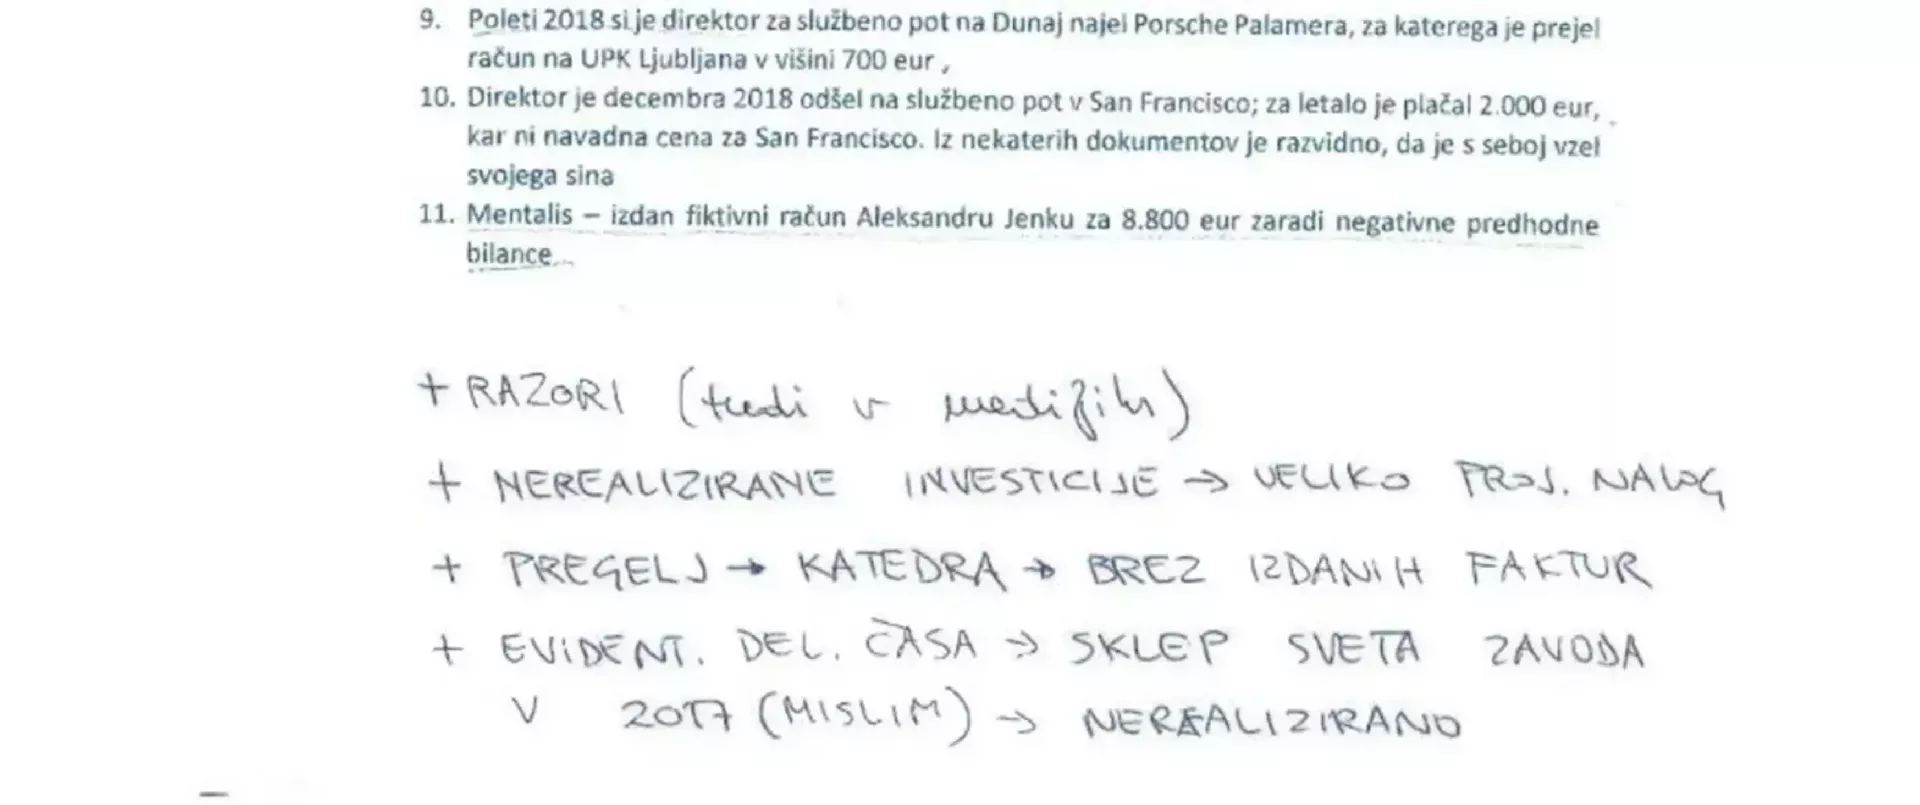 9. Poleti 2018 si je direktor za službeno pot na Dunaj najel Porsche Palamera, za katerega je prejel
račun na UPK Ljubljana v višini 700 eur,
10. Direktor je decembra 2018 odšel na službeno pot v San Francisco; za letalo je plačal 2.000 eur,
kar ni navadna cena za San Francisco. Iz nekaterih dokumentov je razvidno, da je s seboj vzel
svojega sina
11. Mentalis – izdan fiktivni račun Aleksandru Jenku za 8.800 eur zaradi negativne predhodne
bilance
+ RAZORI (tudi v
+ NEREALIZIRANE INVESTICIJE → VELIKO PROJ. NALOG
+ PREGELJ → KATEDRA → BREZ IZDANIH FAKTUR
+ EVIDENT. DEL. ČASA → SKLEP SVETA ZAVODA
V 2017 (MISLIM) → NEREALIZIRANO